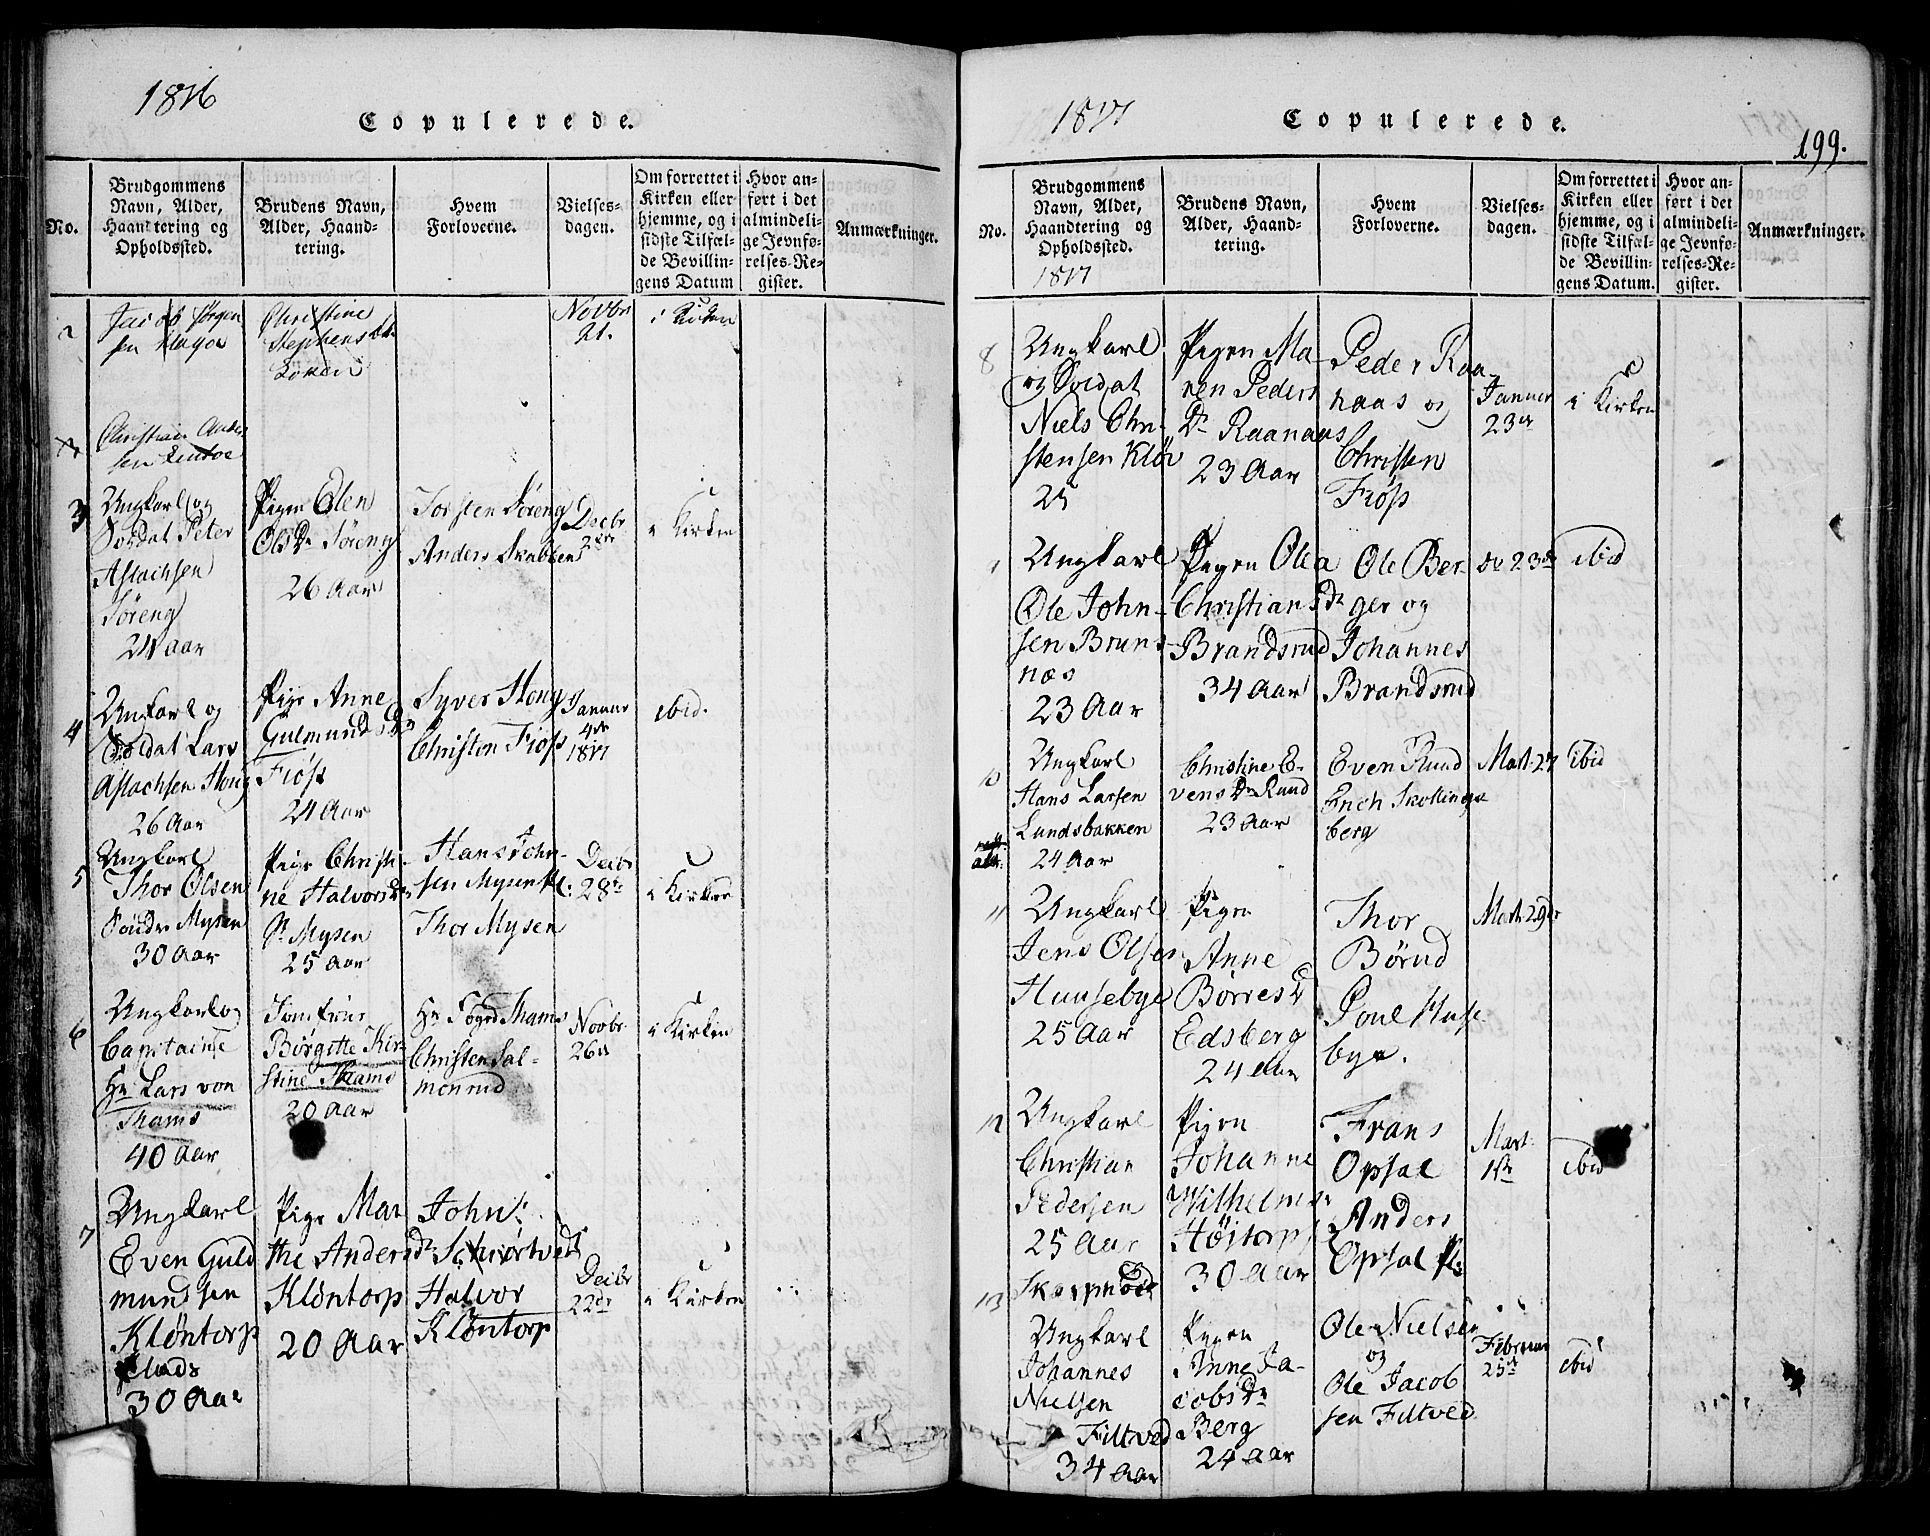 1816
Copulerede.
No.
Brudgommens
Navn, Alder,
Haandtering og
Opholdssted.
Brudens Navn,
Alder, Haand-
tering.
Hvem
Forloverne.
Vielses-
dagen.
Om forrettet i
Kirken eller
hjemme, og i
sidste Tilfæl-
de Bevillin-
gens Datum
Hvor an-
ført i det
almindeli-
ge Jevnfø-
relses-Re-
gister.
Anmærkninger.
2
Jacob Jørgen
sen
Christine
Stephensdr
Novbr
21.
i Kirken
Christian Ander
sen
3
Ungkarl og
Soldat Peter
Aslachsen
Søreng
24 aar
Pigen Elen
Olsdr Søreng
26 Aar
Torsten Søreng
Anders Skabben
Decbr
i Kirken
4
Ungkarl og
Soldat Lars
Aslachsen Houg
26 Aar
Pige Anne
Gulmundsdr
Fiøss
24 Aar
Syver Houg
Christen Fiøss
Januar
4de
1817
ibid.
5
Ungkarl
Thor Olsen
Søndre Mysen
30 Aar
Pige Christi-
ne Halvorsdr
Sr Mysen
25 Aar
Hans John-
sen Mysen Pl:
Thor Mysen
Decbr
28de
i Kirken
6
Ungkarl og
Capitaine
Hr Lars von
Thams
40 Aar
Jomfrue
Birgitte Kir-
stine Thams
20 Aar
Hr Foged Thams
Christen Sal-
monrud
Novbr
26de
i Kirken
7
Ungkarl
Even Guld
mundsen
Kløntorp
Plads
30 Aar
Pige Mar
the Andersdr
Kløntorp
20 Aar
John
Halvor
Kløntorp
Decbr
22de
i Kirken
1817
Copulerede.
199.
No.
Brudgommens
Navn, Alder,
Haandtering og
Opholdssted.
1817
Brudens Navn,
Alder, Haand-
tering.
Hvem
Forloverne.
Vielses-
dagen.
Om forrettet i
Kirken eller
hjemme, og i
sidste Tilfæl-
de Bevillin-
gens Datum.
Hvor an-
ført i det
almindeli-
ge Jevnfø-
relses-Re-
gister.
Anmærkninger.
8
Ungkarl
og Soldat
Niels Chri-
stensen Kløv
25
Pigen Ma-
ren Peders
Dr Raanaas
23 Aar
Peder Raa-
naas og
Christen
Fiøss
Januar
23de
i Kirken
Ungkarl
Ole John-
sen Bruns-
næs
23 Aar
Pigen Olea
Christiansdr
Brandsrud
34 Aar
Ole Ber-
ger og
Johannes
Brandsrud
23de
ibid
10
Ungkarl
Hans Larsen
Lundsbakken
24 Aar
Christine E-
vensdr Ruud
23 Aar
Even Ruud
Erich Skollings
berg
Mart. 27
ibid
11
Ungkarl
Jens Olsen
Huusebye
25 Aar
Pigen
Anne
Børresd
Edsberg
24 Aar
Thor
Børud
Poul Huse-
bye.
Mart. 29de
12
Ungkarl
Christian
Pedersen
25 Aar
Skarpnød
Pigen
Johanne
Wilhelms
Høitorp
30 Aar
Frans
Opsal
Anders
Opsal Pl:
Mart.
1ste
ibid
13
Ungkarl
Johannes
Nielsen
Filtved
34 Aar
Pigen
Anne Ja-
cobsdr
Berg
24 Aar
Ole Nielsen
og
Ole Jacob
sen Filtved
Februar
25de
ibid